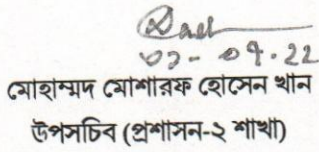 ০৩-০৭.২২
মোহাম্মদ মোশারফ হোসেন খান
উপসচিব (প্রশাসন-২ শাখা)